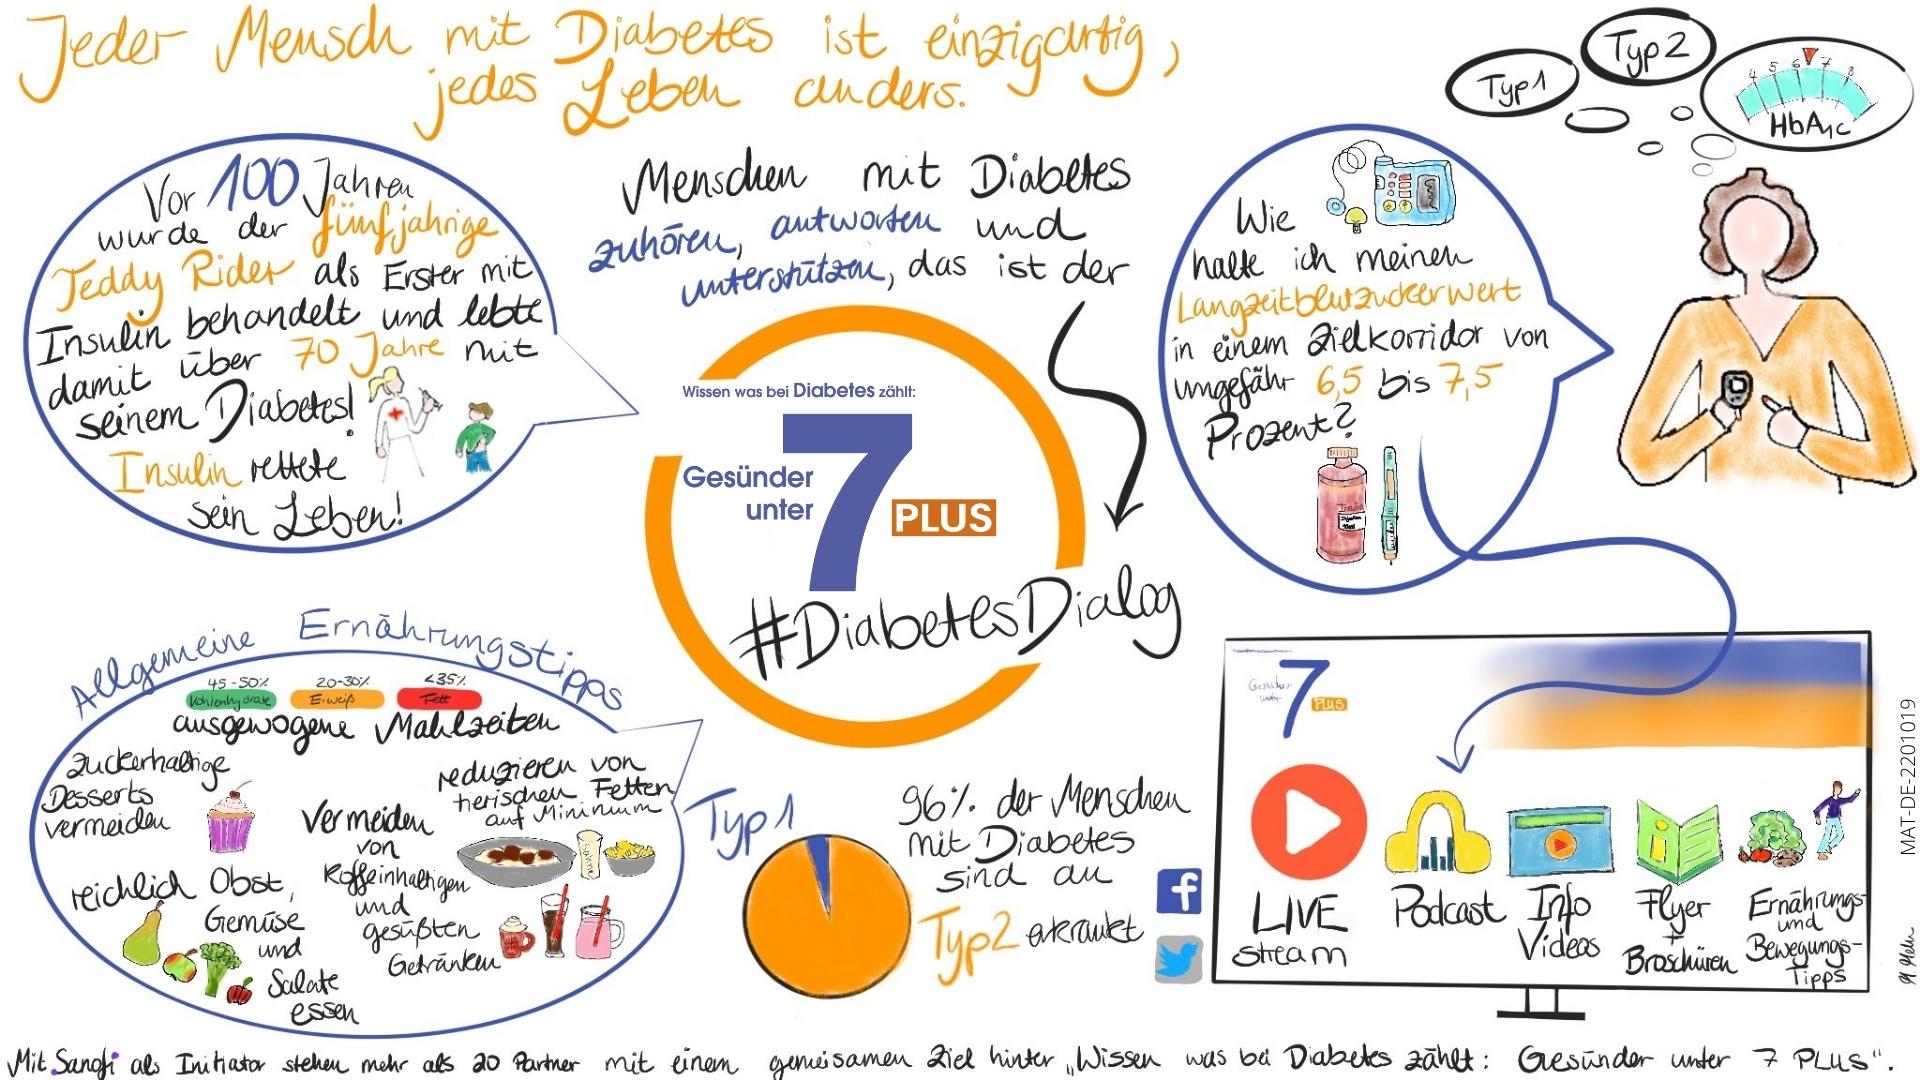 Jeder Mensch mit Diabetes ist einzigartig,
jedes Leben anders.
Vor 100 Jahren
wurde der fünfjährige
Teddy Rider als Erster mit
Insulin behandelt und lebte
damit über 70 Jahre mit
seinem Diabetes!
Insulin rettete
sein Leben!
Menschen mit Diabetes
zuhören, antworten und
unterstützen, das ist der
Wissen was bei Diabetes zählt:
Gesünder
unter
7
PLUS
#DiabetesDialog
Typ1
Typ2
4 5 6 7 8
HbA1c
Wie
halte ich meinen
Langzeitblutzuckerwert
in einem Zielkorridor von
ungefähr 6,5 bis 7,5
Prozent?
Insulin
Allgemeine Ernährungstipps
45-50% 20-30% <35%
Kohlenhydrate Eiweiß Fett
ausgewogene Mahlzeiten
zuckerhaltige
Desserts
vermeiden
reduzieren von
tierischen Fetten
auf Minimum
Vermeiden
von
Koffeinhaltigen
und
gesüßten
Getränken
reichlich Obst,
Gemüse
und
Salate
essen
Typ1
96% der Menschen
mit Diabetes
sind an
Typ2 erkrankt
f
Gesünder
unter
7
PLUS
LIVE
steam
Podcast
Info
Videos
Flyer
+
Broschüren
Ernährungs-
und
Bewegungs-
Tipps
MAT-DE-2201019
Mit Sanofi als Initiator stehen mehr als 20 Partner mit einem gemeisamen Ziel hinter „Wissen was bei Diabetes zählt: Gesünder unter 7 PLUS".